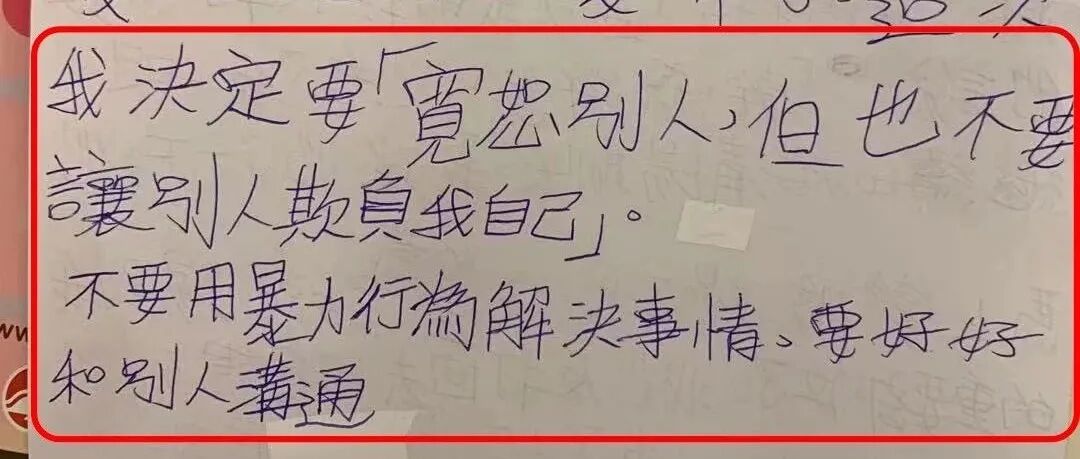 我決定要「寬恕別人，但也不要
讓別人欺負我自己」。
不要用暴力行為解決事情、要好好
和別人溝通